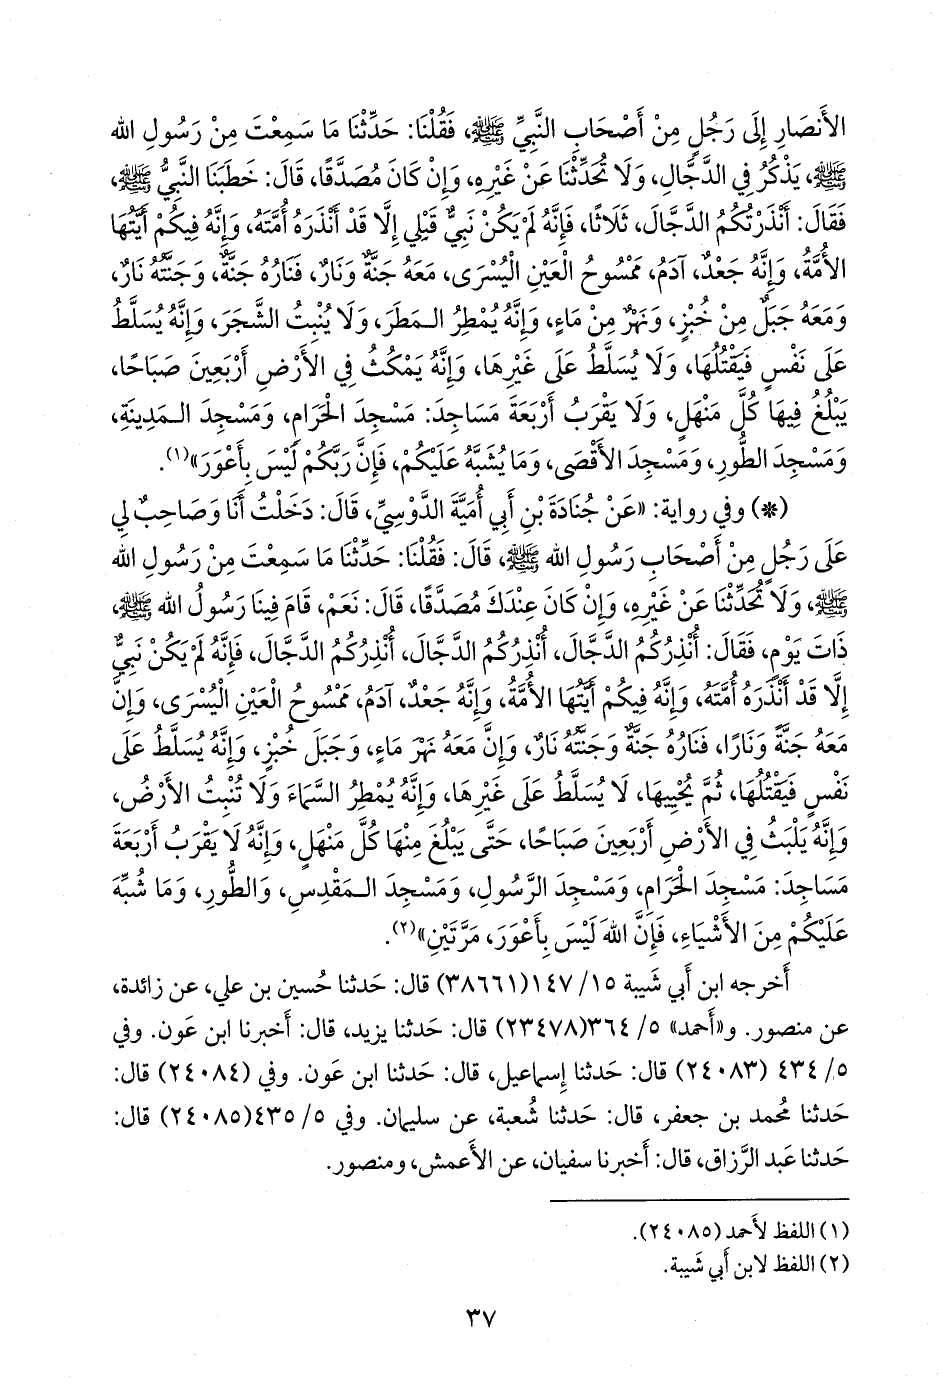 الأَنصَارِ إِلَى رَجُلٍ مِنْ أَصْحَابِ النَّبِيِّ ﷺ، فَقُلْنَا: حَدِّثْنَا مَا سَمِعْتَ مِنْ رَسُولِ الله
ﷺ، يَذْكُرُ فِي الدَّجَّالِ، وَلَا تُحَدِّثْنَا عَنْ غَيْرِهِ، وَإِنْ كَانَ مُصَدَّقًا، قَالَ: خَطَبَنَا النَّبِيُّ ﷺ،
فَقَالَ: أَنْذَرْتُكُمُ الدَّجَّالَ، ثَلَاثًا، فَإِنَّهُ لَمْ يَكُنْ نَبِيٌّ قَبْلِي إِلَّا قَدْ أَنْذَرَهُ أُمَّتَهُ، وَإِنَّهُ فِيكُمْ أَيَّتُهَا
الأُمَّةُ، وَإِنَّهُ جَعْدٌ، آدَمُ، مَمْسُوحُ الْعَيْنِ الْيُسْرَى، مَعَهُ جَنَّةٌ وَنَارٌ، فَنَارُهُ جَنَّةٌ، وَجَنَّتُهُ نَارٌ،
وَمَعَهُ جَبَلٌ مِنْ خُبْزٍ، وَنَهْرٌ مِنْ مَاءٍ، وَإِنَّهُ يُمْطِرُ الـمَطَرَ، وَلَا يُنْبِتُ الشَّجَرَ، وَإِنَّهُ يُسَلَّطُ
عَلَى نَفْسٍ فَيَقْتُلُهَا، وَلَا يُسَلَّطُ عَلَى غَيْرِهَا، وَإِنَّهُ يَمْكُثُ فِي الأَرْضِ أَرْبَعِينَ صَبَاحًا،
يَبْلُغُ فِيهَا كُلَّ مَنْهَلٍ، وَلَا يَقْرَبُ أَرْبَعَةَ مَسَاجِدَ: مَسْجِدَ الْحَرَامِ، وَمَسْجِدَ الـمَدِينَةِ،
وَمَسْجِدَ الطُّورِ، وَمَسْجِدَ الأَقْصَى، وَمَا يُشَبَّهُ عَلَيْكُمْ، فَإِنَّ رَبَّكُمْ لَيْسَ بِأَعْوَرَ»(١).
(*) وفي رواية: «عَنْ جُنَادَةَ بْنِ أَبِي أُمَيَّةَ الدَّوْسِيِّ، قَالَ: دَخَلْتُ أَنَا وَصَاحِبٌ لِي
عَلَى رَجُلٍ مِنْ أَصْحَابِ رَسُولِ الله ﷺ، قَالَ: فَقُلْنَا: حَدِّثْنَا مَا سَمِعْتَ مِنْ رَسُولِ الله
ﷺ، وَلَا تُحَدِّثْنَا عَنْ غَيْرِهِ، وَإِنْ كَانَ عِنْدَكَ مُصَدَّقًا، قَالَ: نَعَمْ، قَامَ فِينَا رَسُولُ الله ﷺ،
ذَاتَ يَوْمٍ، فَقَالَ: أُنْذِرُكُمُ الدَّجَّالَ، أُنْذِرُكُمُ الدَّجَّالَ، أُنْذِرُكُمُ الدَّجَّالَ، فَإِنَّهُ لَمْ يَكُنْ نَبِيٌّ
إِلَّا قَدْ أَنْذَرَهُ أُمَّتَهُ، وَإِنَّهُ فِيكُمْ أَيَّتُهَا الأُمَّةُ، وَإِنَّهُ جَعْدٌ، آدَمُ، مَمْسُوحُ الْعَيْنِ الْيُسْرَى، وَإِنَّ
مَعَهُ جَنَّةً وَنَارًا، فَنَارُهُ جَنَّةٌ وَجَنَّتُهُ نَارٌ، وَإِنَّ مَعَهُ نَهْرَ مَاءٍ، وَجَبَلَ خُبْزٍ، وَإِنَّهُ يُسَلَّطُ عَلَى
نَفْسٍ فَيَقْتُلُهَا، ثُمَّ يُحْيِيهَا، لَا يُسَلَّطُ عَلَى غَيْرِهَا، وَإِنَّهُ يُمْطِرُ السَّمَاءَ وَلَا تُنْبِتُ الأَرْضُ،
وَإِنَّهُ يَلْبَثُ فِي الأَرْضِ أَرْبَعِينَ صَبَاحًا، حَتَّى يَبْلُغَ مِنْهَا كُلَّ مَنْهَلٍ، وَإِنَّهُ لَا يَقْرَبُ أَرْبَعَةَ
مَسَاجِدَ: مَسْجِدَ الْحَرَامِ، وَمَسْجِدَ الرَّسُولِ، وَمَسْجِدَ الـمَقْدِسِ، وَالطُّورِ، وَمَا شُبِّهَ
عَلَيْكُمْ مِنَ الأَشْيَاءِ، فَإِنَّ اللهَ لَيْسَ بِأَعْوَرَ، مَرَّتَيْنِ»(٢).
أَخرجه ابن أَبي شَيبة ١٥/ ١٤٧(٣٨٦٦١) قال: حَدثنا حُسين بن علي، عن زائدة،
عن منصور. و«أَحمد» ٥/ ٣٦٤(٢٣٤٧٨) قال: حَدثنا يزيد، قال: أَخبرنا ابن عَون. وفي
٥/ ٤٣٤ (٢٤٠٨٣) قال: حَدثنا إِسماعيل، قال: حَدثنا ابن عَون. وفي (٢٤٠٨٤) قال:
حَدثنا مُحمد بن جعفر، قال: حَدثنا شُعبة، عن سليمان. وفي ٥/ ٤٣٥(٢٤٠٨٥) قال:
حَدثنا عَبد الرَّزاق، قال: أَخبرنا سفيان، عن الأَعمش، ومنصور.
(١) اللفظ لأَحمد (٢٤٠٨٥).
(٢) اللفظ لابن أَبي شَيبة.
٣٧